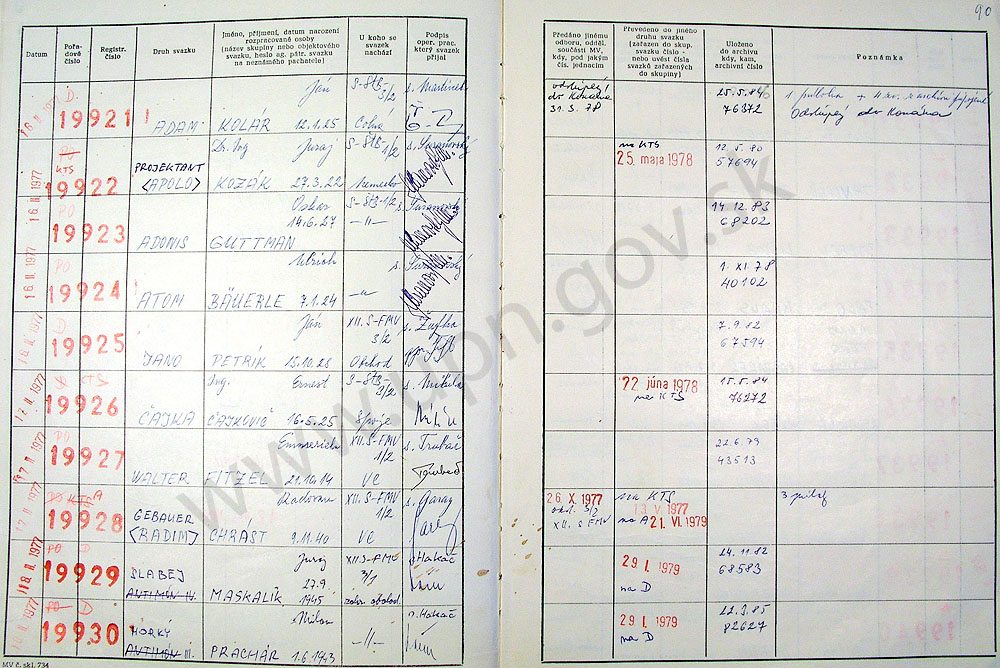 90
Datum
Pořa-
dové
číslo
Registr.
číslo
Druh svazku
Jméno, příjmení, datum narození
rozpracované osoby
(název skupiny nebo objektového
svazku, heslo ag. pátr. svazku
na neznámého pachatele)
U koho se
svazek
nachází
Podpis
oper. prac.
který svazek
přijal
Předáno jinému
odboru, odděl.
součásti MV,
kdy, pod jakým
čís. jednacím
Převedeno do jiného
druhu svazku
(zařazen do skup.
svazku číslo -
nebo uvést čísla
svazků zařazených
do skupiny)
Uloženo
do archivu
kdy, kam,
archivní číslo
Poznámka
D.
19921
ADAM
Ján
KOLÁR 12.1.25
S-ŠtB-
3/2
s. Martinek
31.3.78
25.5.84
76372
16. II. 1977
KTS
19922
PROJEKTANT
(APOLO)
Dr. Ing Juraj
KOZÁK 27.3.22
S-ŠtB-1/2
Nemecko
na KTS
25. mája 1978
12.5.80
57694
16. II. 1977
PO
19923
ADONIS
Oskar
14.6.27
GUTTMAN
S-ŠtB-1/2
-"-
14.12.83
68202
16. II. 1977
PO
19924
ATOM
Ulrich
BÄUERLE 7.1.24
-"-
1. XI. 78
40102
D
19925
JANO
Ján
PETRÍK 15.10.28
XII. S-FMV
3/2
Obchod
7.9.82
67594
17. II. 1977
KTS
19926
ČAJKA
Ing. Ernest
ČAJKOVIČ 16.5.25
S-ŠtB-
3/2
Spoje
s. Mikula
22. júna 1978
na KTS
15.5.84
76272
17. II. 1977
PO
19927
WALTER
Emmerich
FITZEL 21.10.14
XII. S-FMV
1/2
VC
22.6.79
43513
17. II. 1977
PO KTS A
19928
GEBAUER
(RADIM)
Radovan
CHRÁST 9.11.40
XII. S-FMV
1/2
VC
s. Garaj
26. X. 1977
odd. 3/2
XII. S FMV
na KTS
13. V. 1977
na A 21. VI. 1979
18. II. 1977
PO D
19929
SLABEJ
ANTIMÓN IV.
Juraj
27.9
MASKALÍK 1945
XII. S-FMV
3/1
s. Hakáč
29. I. 1979
na D
24.11.82
68583
PO D
19930
HORKÝ
ANTIMÓN III.
Milan
PRACHÁR 1.6.1943
-"-
s. Hakáč
29. I. 1979
na D
22.3.85
82627
MV č. skl. 734
www.upn.gov.sk